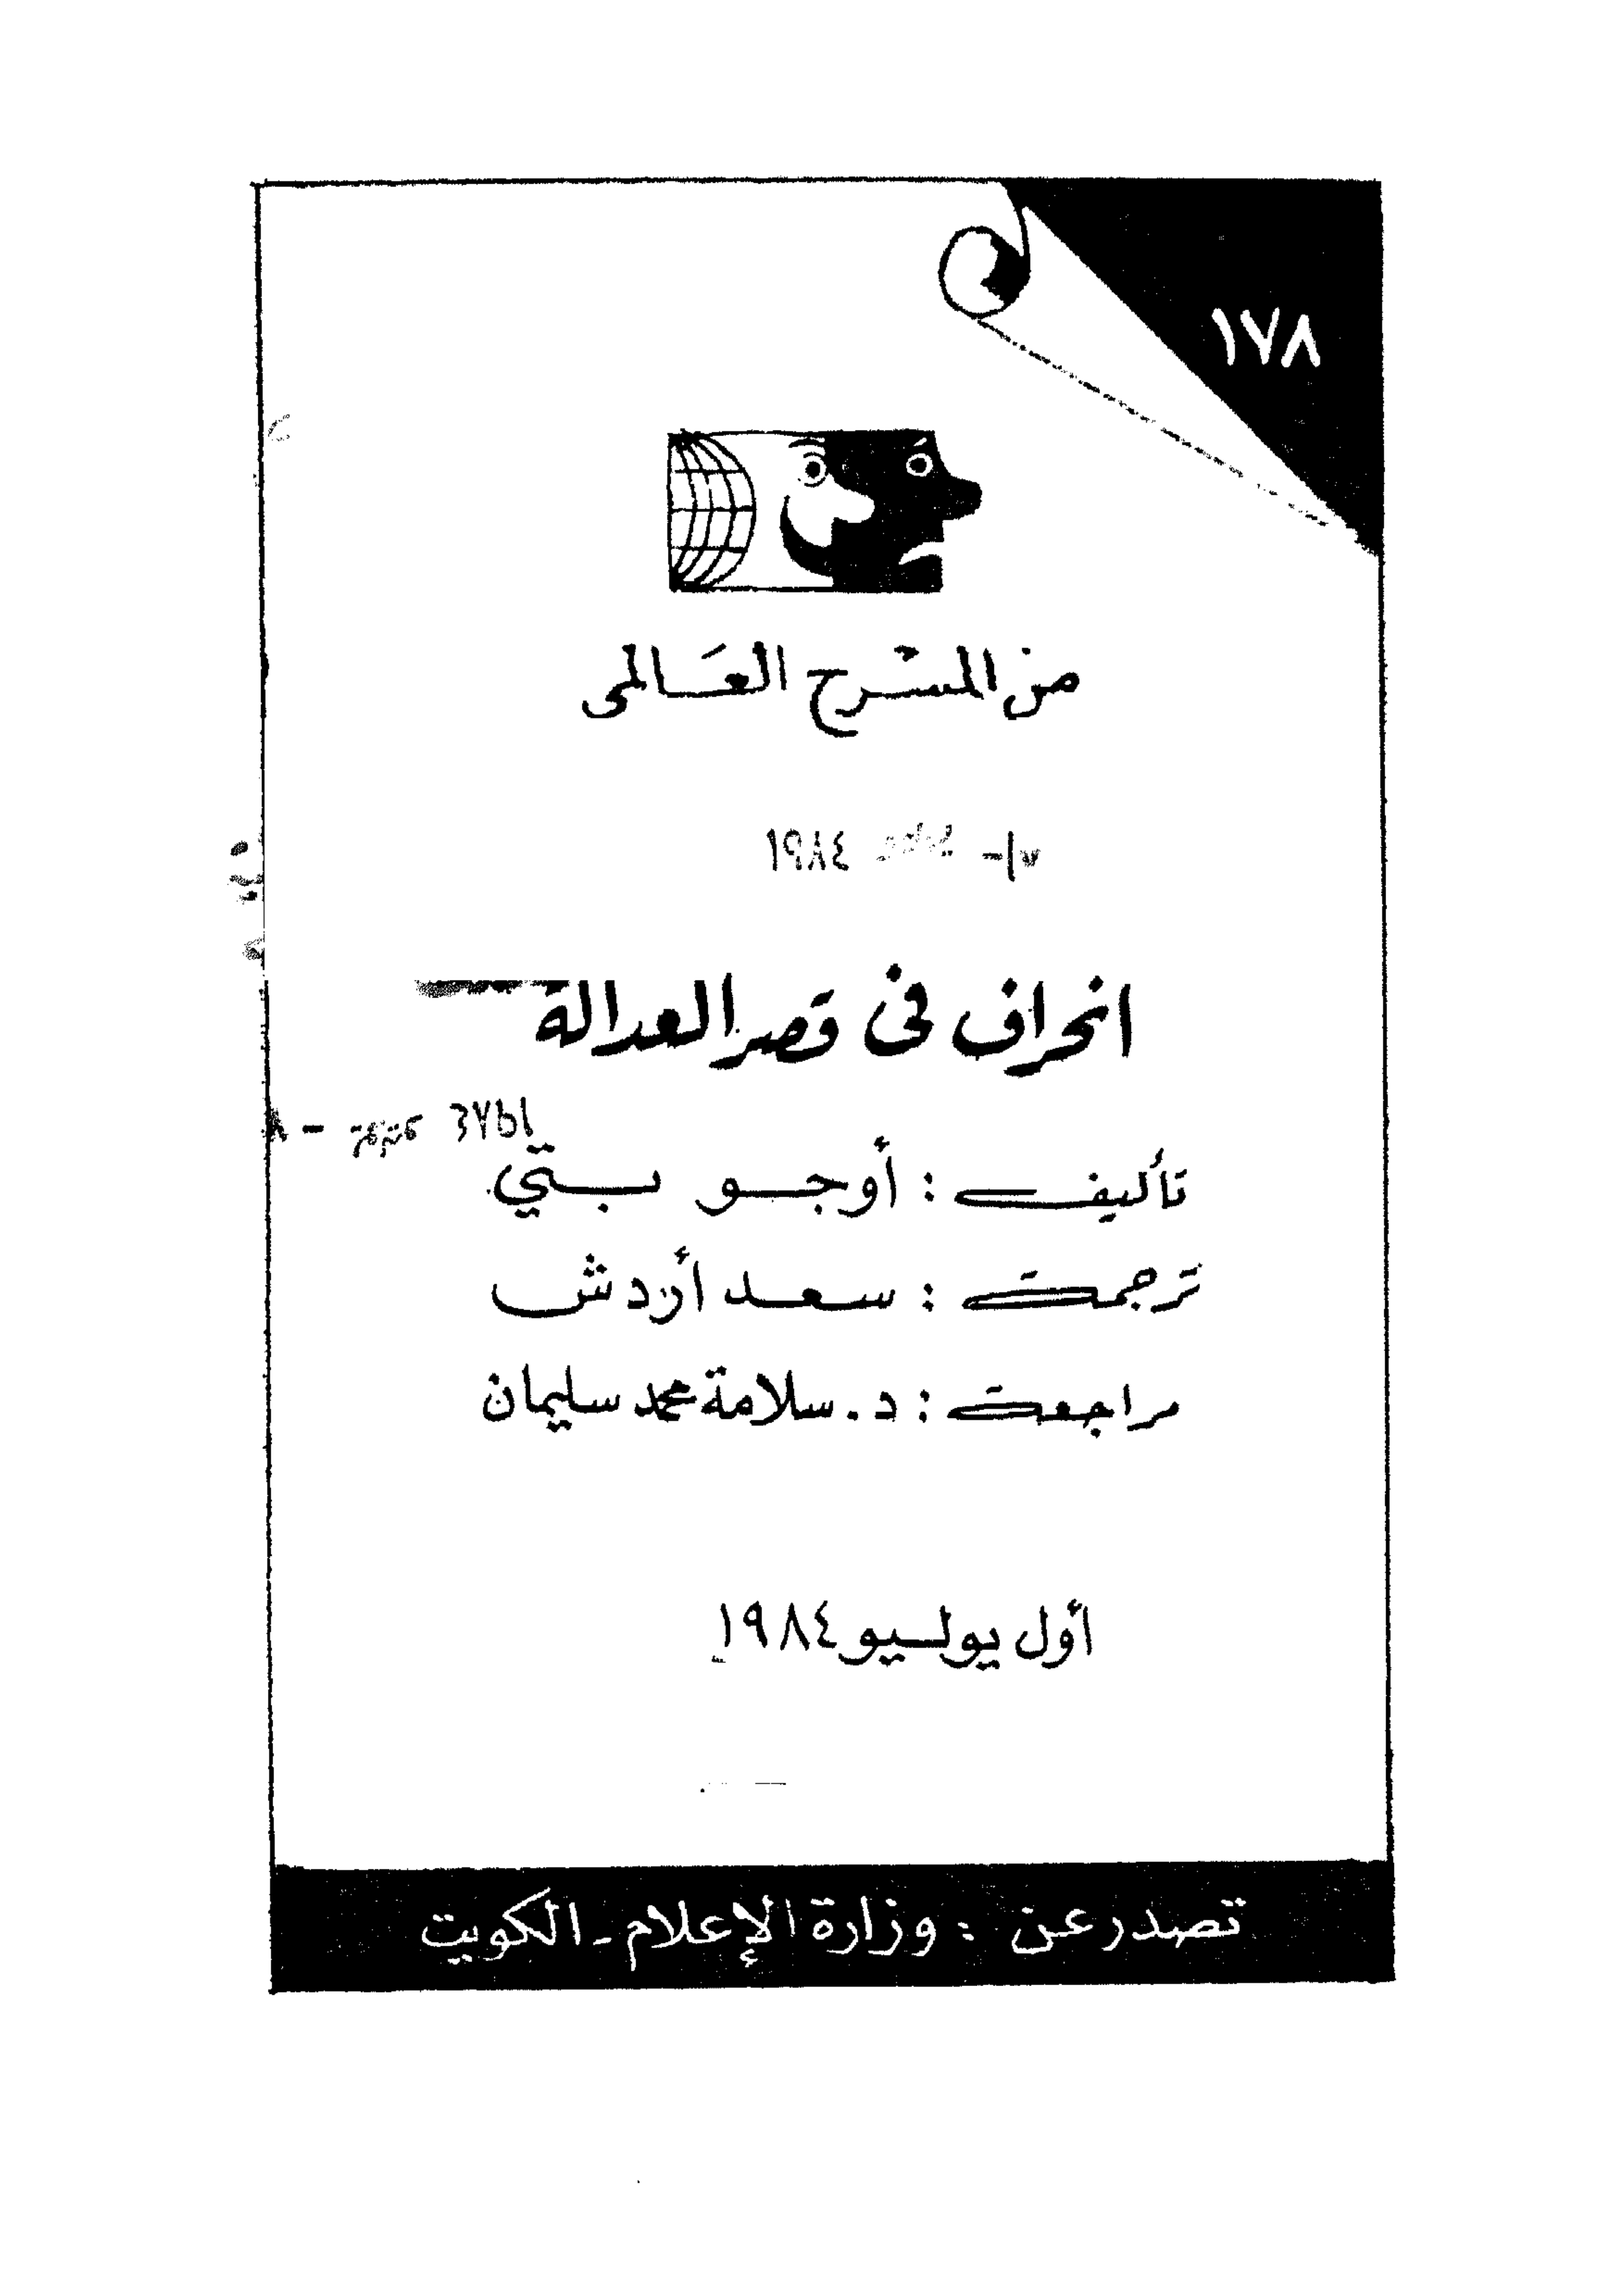 ١٧٨
من المسرح العالمى
١٩٨٤
انحراف فى قصر العدالة
تأليف : أوجو بتي
ترجمة : سعد أردش
مراجعة : د. سلامة محمد سليمان
أول يوليو ١٩٨٤
تصدر عن : وزارة الإعلام - الكويت